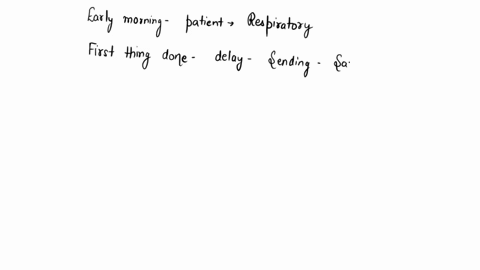 Early morning - patient → Respiratory
First thing done - delay - Sending - Sa